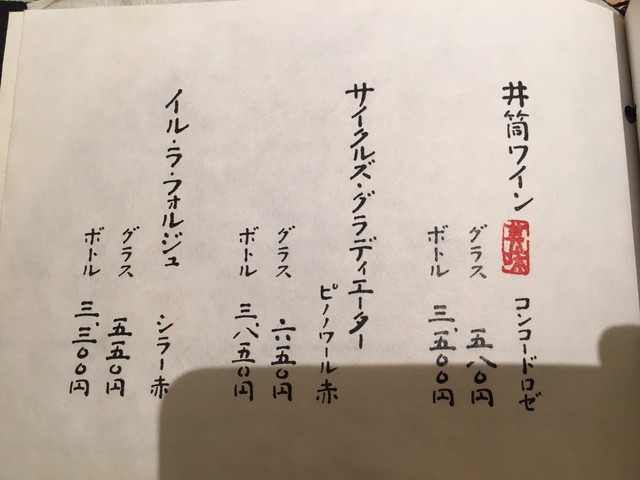 井筒ワイン
コンコードロゼ
グラス 五八〇円
ボトル 三、五〇〇円
サイクルズ・グラディエーター
ピノノワール赤
グラス 六五〇円
ボトル 三、八五〇円
イル・ラ・フォルジュ
シラー赤
グラス 五五〇円
ボトル 三、三〇〇円